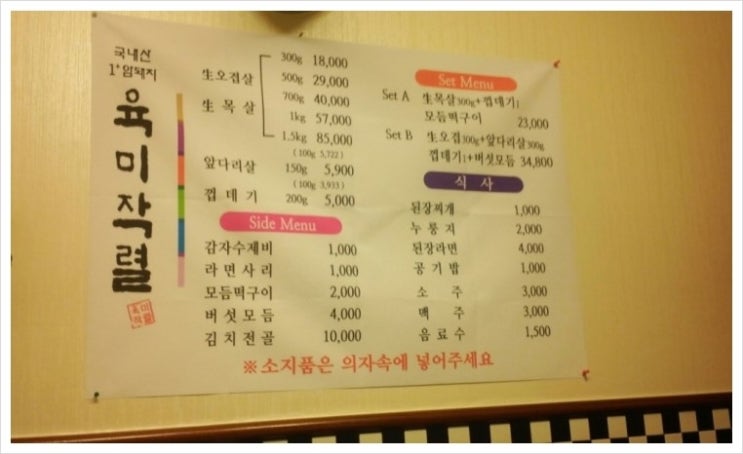 국내산
1+암돼지
육미작렬
生오겹살
生목살
300g 18,000
500g 29,000
700g 40,000
1kg 57,000
1.5kg 85,000
(100g 5,722)
앞다리살 150g 5,900
(100g 3,933)
껍데기 200g 5,000
Side Menu
감자수제비 1,000
라면사리 1,000
모듬떡구이 2,000
버섯모듬 4,000
김치전골 10,000
Set Menu
Set A 生목살300g+껍데기1
모듬떡구이 23,000
Set B 生오겹300g+앞다리살300g
껍데기1+버섯모듬 34,800
식사
된장찌개 1,000
누룽지 2,000
된장라면 4,000
공기밥 1,000
소주 3,000
맥주 3,000
음료수 1,500
※소지품은 의자속에 넣어주세요
육미작렬